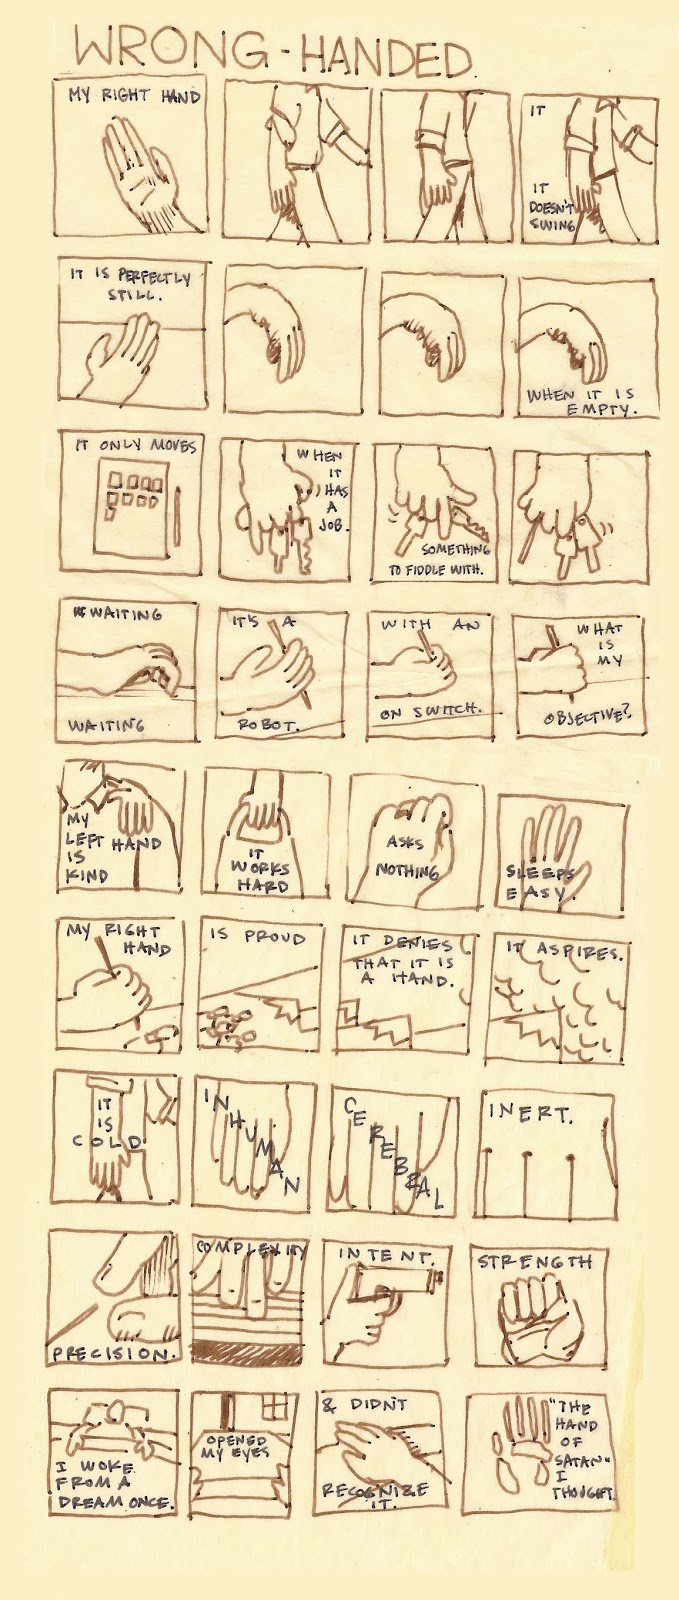 WRONG-HANDED
MY RIGHT HAND
IT
IT
DOESN'T
SWING
IT IS PERFECTLY
STILL.
WHEN IT IS
EMPTY.
IT ONLY MOVES
WHEN
IT
HAS
A
JOB.
SOMETHING
TO FIDDLE WITH.
WAITING
WAITING
IT'S A
ROBOT.
WITH AN
ON SWITCH.
WHAT
IS
MY
OBJECTIVE?
MY
LEFT HAND
IS
KIND
IT
WORKS
HARD
ASKS
NOTHING
SLEEPS
EASY.
MY RIGHT
HAND
IS PROUD
IT DENIES
THAT IT IS
A HAND.
IT ASPIRES.
IT
IS
COLD
INHUMAN
CEREBRAL
INERT.
PRECISION.
COMPLEXITY
INTENT.
STRENGTH
I WOKE
FROM A
DREAM ONCE.
OPENED
MY EYES
& DIDN'T
RECOGNIZE
IT.
"THE
HAND
OF
SATAN"
I
THOUGHT.